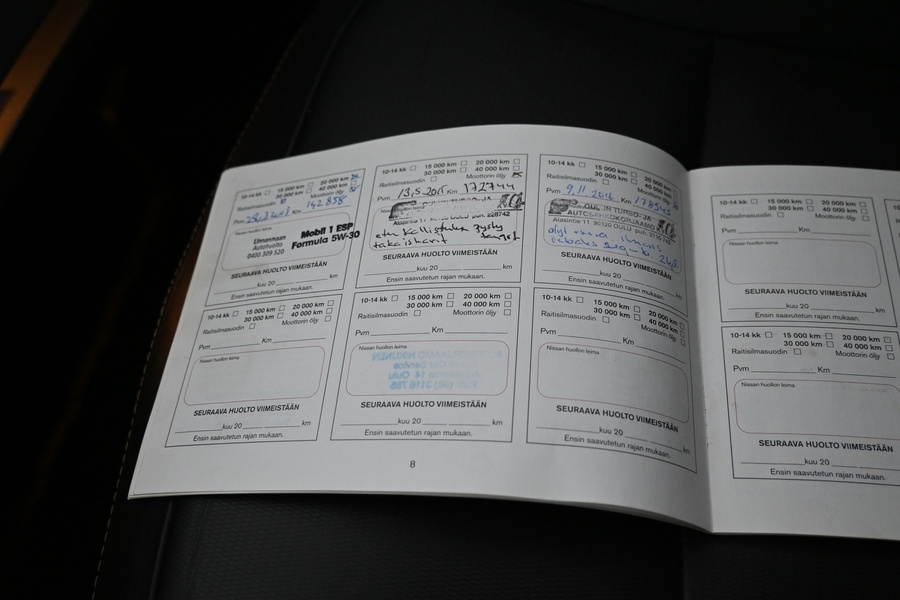 10-14 kk 15 000 km 20 000 km
30 000 km 40 000 km
Raitisilmasuodin Moottorin öljy
Pvm Km 142 858
Uimamaan
Autohuolto
0400 309 520
Mobil 1 ESP
Formula 5W-30
SEURAAVA HUOLTO VIIMEISTÄÄN
kuu 20 km
Ensin saavutetun rajan mukaan.
10-14 kk 15 000 km 20 000 km
30 000 km 40 000 km
Raitisilmasuodin Moottorin öljy
Pvm 13,5.2015 Km 172744
Nissan huollon leima
etu kallistuksen
SEURAAVA HUOLTO VIIMEISTÄÄN
kuu 20 km
Ensin saavutetun rajan mukaan.
10-14 kk 15 000 km 20 000 km
30 000 km 40 000 km
Raitisilmasuodin Moottorin öljy
Pvm 9.11.2016 Km 178545
OULUN TURBO- JA
AUTOSÄHKÖKORJAAMO
Alasintie 11 90400 OULU puh.
SEURAAVA HUOLTO VIIMEISTÄÄN
kuu 20 km
Ensin saavutetun rajan mukaan.
10-14 kk 15 000 km 20 000 km
30 000 km 40 000 km
Raitisilmasuodin Moottorin öljy
Pvm Km
Nissan huollon leima
SEURAAVA HUOLTO VIIMEISTÄÄN
kuu 20 km
Ensin saavutetun rajan mukaan.
10-14 kk 15 000 km 20 000 km
30 000 km 40 000 km
Raitisilmasuodin Moottorin öljy
Pvm Km
Nissan huollon leima
SEURAAVA HUOLTO VIIMEISTÄÄN
kuu 20 km
Ensin saavutetun rajan mukaan.
10-14 kk 15 000 km 20 000 km
30 000 km 40 000 km
Raitisilmasuodin Moottorin öljy
Pvm Km
Nissan huollon leima
SEURAAVA HUOLTO VIIMEISTÄÄN
kuu 20 km
Ensin saavutetun rajan mukaan.
8
10-14 kk 15 000 km 20 000 km
30 000 km 40 000 km
Raitisilmasuodin Moottorin öljy
Pvm Km
Nissan huollon leima
SEURAAVA HUOLTO VIIMEISTÄÄN
kuu 20 km
Ensin saavutetun rajan mukaan.
10-14 kk 15 000 km 20 000 km
30 000 km 40 000 km
Raitisilmasuodin Moottorin öljy
Pvm Km
Nissan huollon leima
SEURAAVA HUOLTO VIIMEISTÄÄN
kuu 20 km
Ensin saavutetun rajan mukaan.